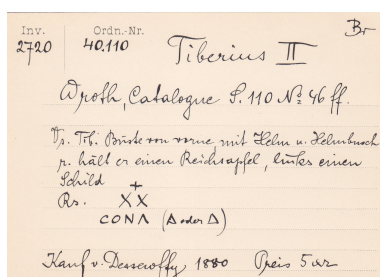 Inv. Ordn.-Nr. Br
2720 40.110 Tiberius II
Wroth, Catalogue S. 110 No 46 ff.
Vs. Tib. Büste von vorne mit Helm u. Helmbusch
r. hält er einen Reichsapfel, links einen
Schild
+
Rs. XX
CONΛ (A oder Δ)
Kauf v. Dessewffy 1880 Preis 5 xr